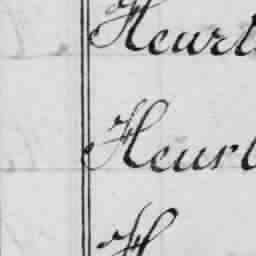 Heurt
Heurt
H